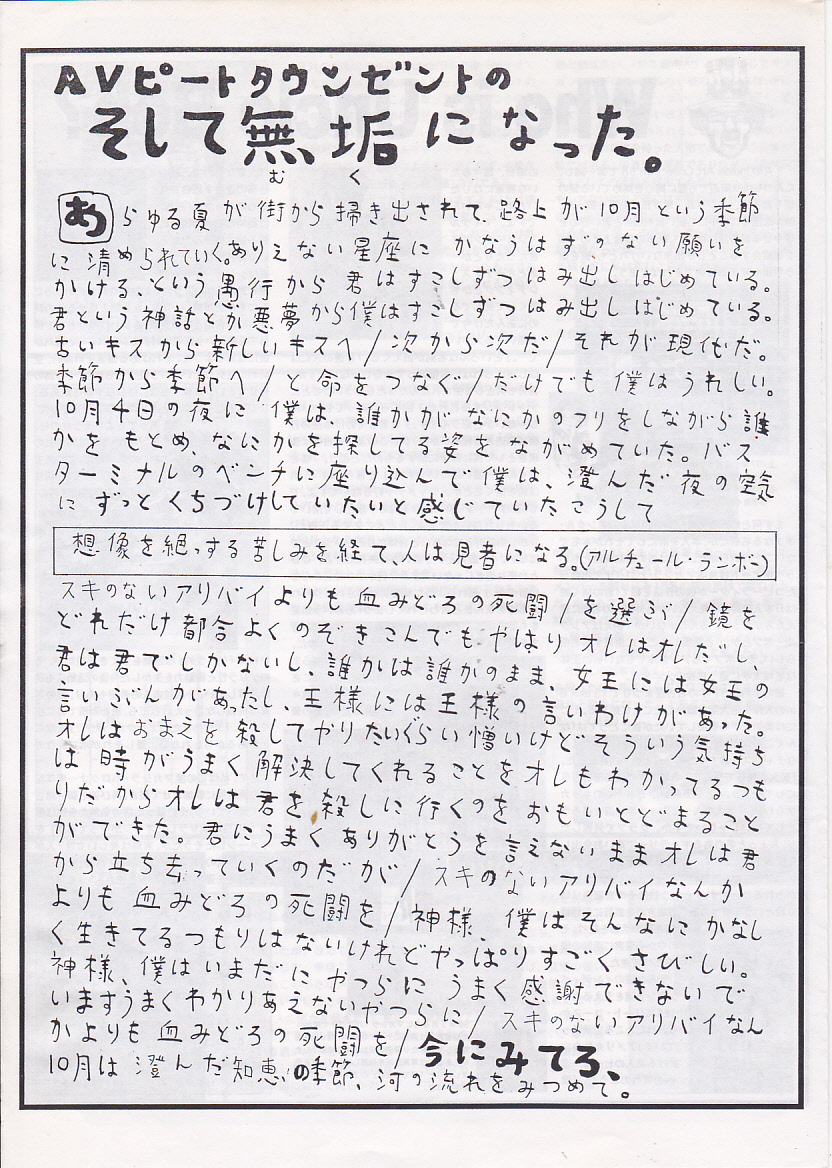 AVピートタウンゼントの
そして無垢になった。
むく
あらゆる夏が街から掃き出されて、路上が10月という季節
に清められていく。ありえない星座にかなうはずのない願いを
かける、という愚行から君はすこしずつはみ出しはじめている。
君という神話とか悪夢から僕はすこしずつはみ出しはじめている。
古いキスから新しいキスへ/次から次だ/それが現代だ。
季節から季節へ/と命をつなぐ/だけでも僕はうれしい。
10月4日の夜に僕は、誰かがなにかのフリをしながら誰
かをもとめ、なにかを探してる姿をながめていた。バス
ターミナルのベンチに座り込んで僕は、澄んだ夜の空気
にずっとくちづけしていたいと感じていたこうして
想像を絶っする苦しみを経て、人は見者になる。(アルチュール・ランボー)
スキのないアリバイよりも血みどろの死闘/を選ぶ/鏡を
どれだけ都合よくのぞきこんでもやはりオレはオレだし、
君は君でしかないし、誰かは誰かのまま、女王には女王の
言いぶんがあったし、王様には王様の言いわけがあった。
オレはおまえを殺してやりたいぐらい憎いけどそういう気持ち
は時がうまく解決してくれることをオレもわかってるつも
りだからオレは君を殺しに行くのをおもいとどまること
ができた。君にうまくありがとうを言えないままオレは君
から立ち去っていくのだが/スキのないアリバイなんか
よりも血みどろの死闘を/神様、僕はそんなにかなし
く生きてるつもりはないけれどやっぱりすごくさびしい。
神様、僕はいまだにやつらにうまく感謝できないで
いますうまくわかりあえないやつらに/スキのないアリバイなん
かよりも血みどろの死闘を/今にみてろ、
10月は澄んだ知恵の季節、河の流れをみつめて。